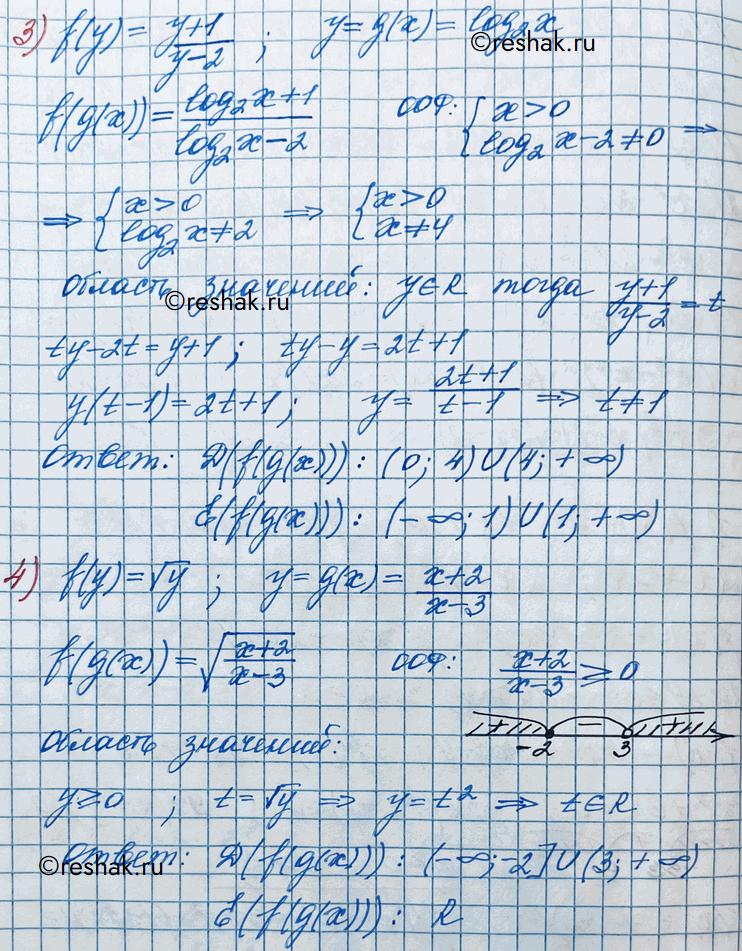 3) f(y) = (y+1)/(y-2) ; y = g(x) = log₂x
©reshak.ru
f(g(x)) = (log₂x+1)/(log₂x-2) ООФ: { x>0 ; log₂x-2≠0 ⇒
⇒ { x>0 ; log₂x≠2 ⇒ { x>0 ; x≠4
область значений: y∈R тогда (y+1)/(y-2) = t
©reshak.ru
ty-2t=y+1 ; ty-y=2t+1
y(t-1)=2t+1 ; y = (2t+1)/(t-1) ⇒ t≠1
ответ: D(f(g(x))): (0; 4)U(4; +∞)
E(f(g(x))): (-∞; 1)U(1; +∞)
4) f(y)=√y ; y=g(x) = (x+2)/(x-3)
f(g(x)) = √((x+2)/(x-3)) ООФ: (x+2)/(x-3) ≥ 0
+ - +
-2 3
область значений:
y≥0 ; t=√y ⇒ y=t² ⇒ t∈R
ответ: D(f(g(x))): (-∞; -2]U(3; +∞)
©reshak.ru
E(f(g(x))): R